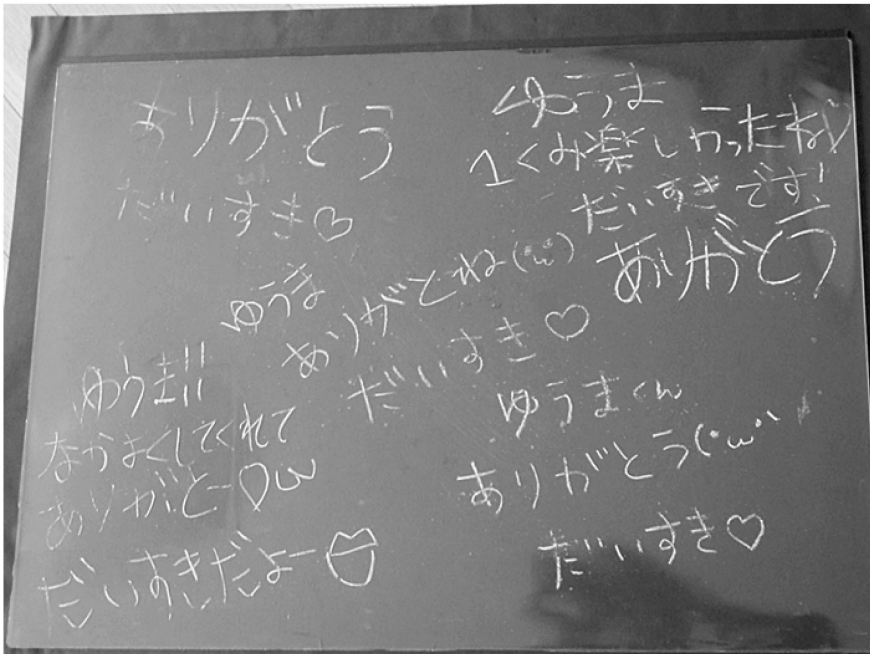 ありがとう
だいすき♡
ゆうま
1くみ楽しかったね♡
だいすきです!
ありがとう
ゆうま
ありがとね(¨ω¨)
だいすき♡
ゆうま!!
なかよくしてくれて
ありがとー♡ω
だいすきだよー
ゆうまくん
ありがとう(¨ω¨
だいすき♡